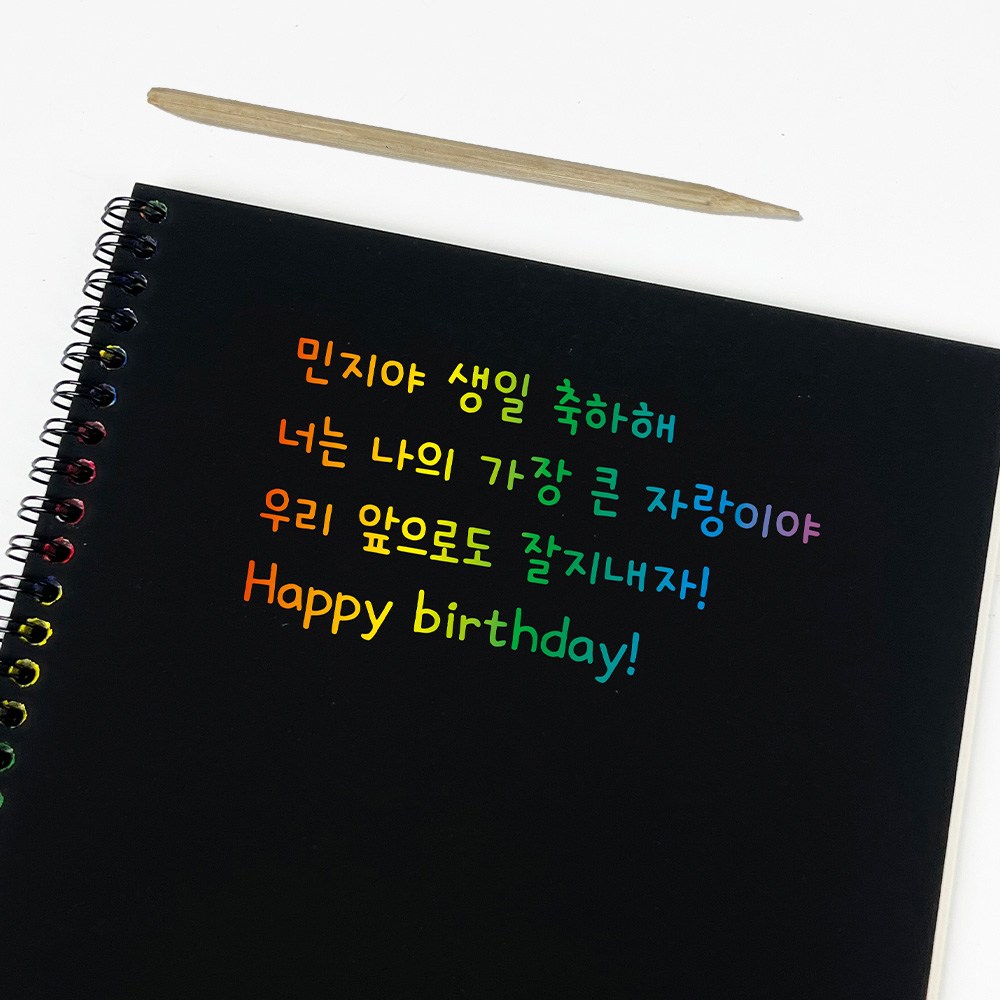 민지야 생일 축하해
너는 나의 가장 큰 자랑이야
우리 앞으로도 잘지내자!
Happy birthday!